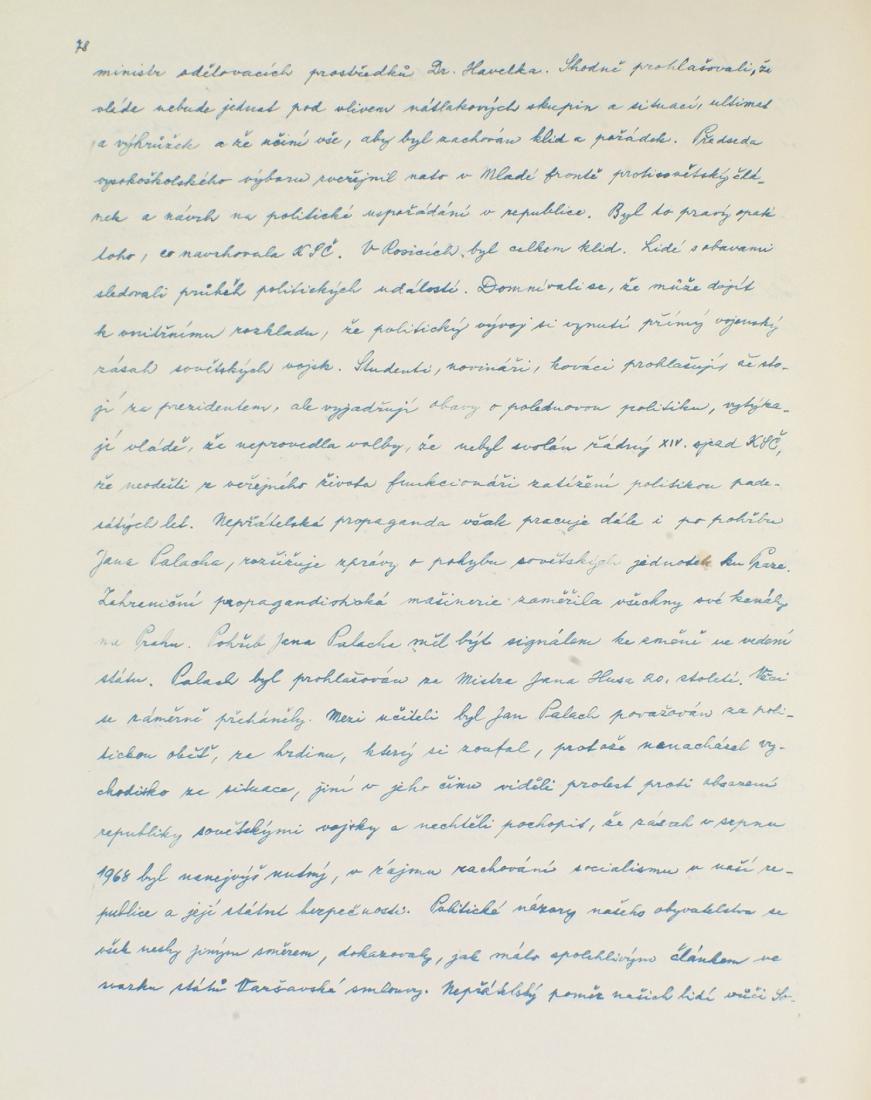 78
ministr sdělovacích prostředků Dr. Havelka. Shodně prohlašovali, že
vláda nebude jednat pod vlivem nátlakových skupin a situací, ultimat
a výhrůžek a že učiní vše, aby byl zachován klid a pořádek. Předseda
vysokoškolského výboru zveřejnil nato v Mladé frontě protisovětský člá-
nek a návrh na politické uspořádání v republice. Byl to pravý opak
toho, co navrhovala KSČ. V Rosicích byl celkem klid. Lidé s obavami
sledovali průběh politických událostí. Domnívali se, že může dojít
k vnitřnímu rozkladu, že politický vývoj si vynutí přímý vojenský
zásah sovětských vojsk. Studenti, novináři, kováci prohlašují, že sto-
jí za prezidentem, ale vyjadřují obavy o polednovou politiku, vytýka-
jí vládě, že neprovedla volby, že nebyl svolán řádný XIV. sjezd KSČ,
že neodešli z veřejného života funkcionáři zatížení politikou pade-
sátých let. Nepřátelská propaganda však pracuje dále i po pohřbu
Jana Palacha, rozšiřuje zprávy o pohybu sovětských jednotek ku Praze.
Zahraniční propagandistická mašinerie zaměřila všechny své kanály
na Prahu. Pohřeb Jana Palacha měl být signálem ke změně ve vedení
státu. Palach byl prohlašován za Mistra Jana Husa 20. století. Věci
se záměrně přeháněly. Mezi učiteli byl Jan Palach považován za poli-
tickou oběť, za hrdinu, který si zoufal, protože nenacházel vy-
chodisko ze situace, jiní v jeho činu viděli protest proti obsazení
republiky sovětskými vojsky a nechtěli pochopit, že zásah v srpnu
1968 byl nanejvýš nutný, v zájmu zachování socialismu v naší re-
publice a její státní bezpečnosti. Politické názory našeho obyvatelstva se
však nesly jiným směrem, dokazovaly, jak málo spolehlivým článkem ve
svazku států Varšavské smlouvy. Nepřátelský poměr našich lidí vůči So-